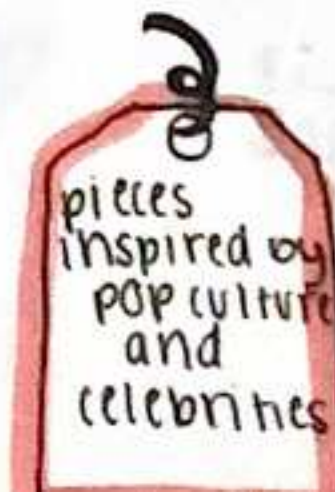 pieces
inspired by
pop culture
and
celebrities